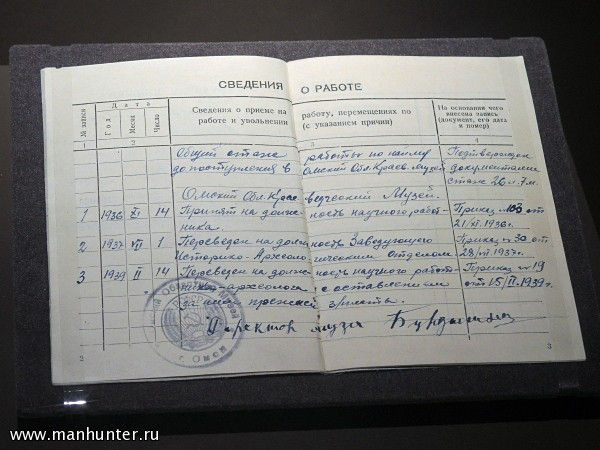 СВЕДЕНИЯ О РАБОТЕ
№ записи
Дата
Год
Месяц
Число
Сведения о приеме на работу, перемещениях по
работе и увольнении (с указанием причин)
На основании чего
внесена запись
(документ, его дата
и номер)
1 2 3
Общий стаж работы по найму Подтвержден
до поступления в Омский Обл. Краев. музей документами
стаж 26 л. 7 м.
Омский Обл. Краеведческий Музей.
1 1936 XI 14 Принят на должность научного работника. Приказ № 103 от
21/XI. 1936г.
2 1937 VII 1 Переведен на должность Заведующего Приказ № 30 от
Историко-Археологическим Отделом 28/VI. 1937г.
3 1939 II 14 Переведен на должность научного работ- Приказ № 19
ника-археолога с оставлением от 15/II. 1939г.
за ним прежней з/платы.
Директор музея
г. Омск
2 3
www.manhunter.ru